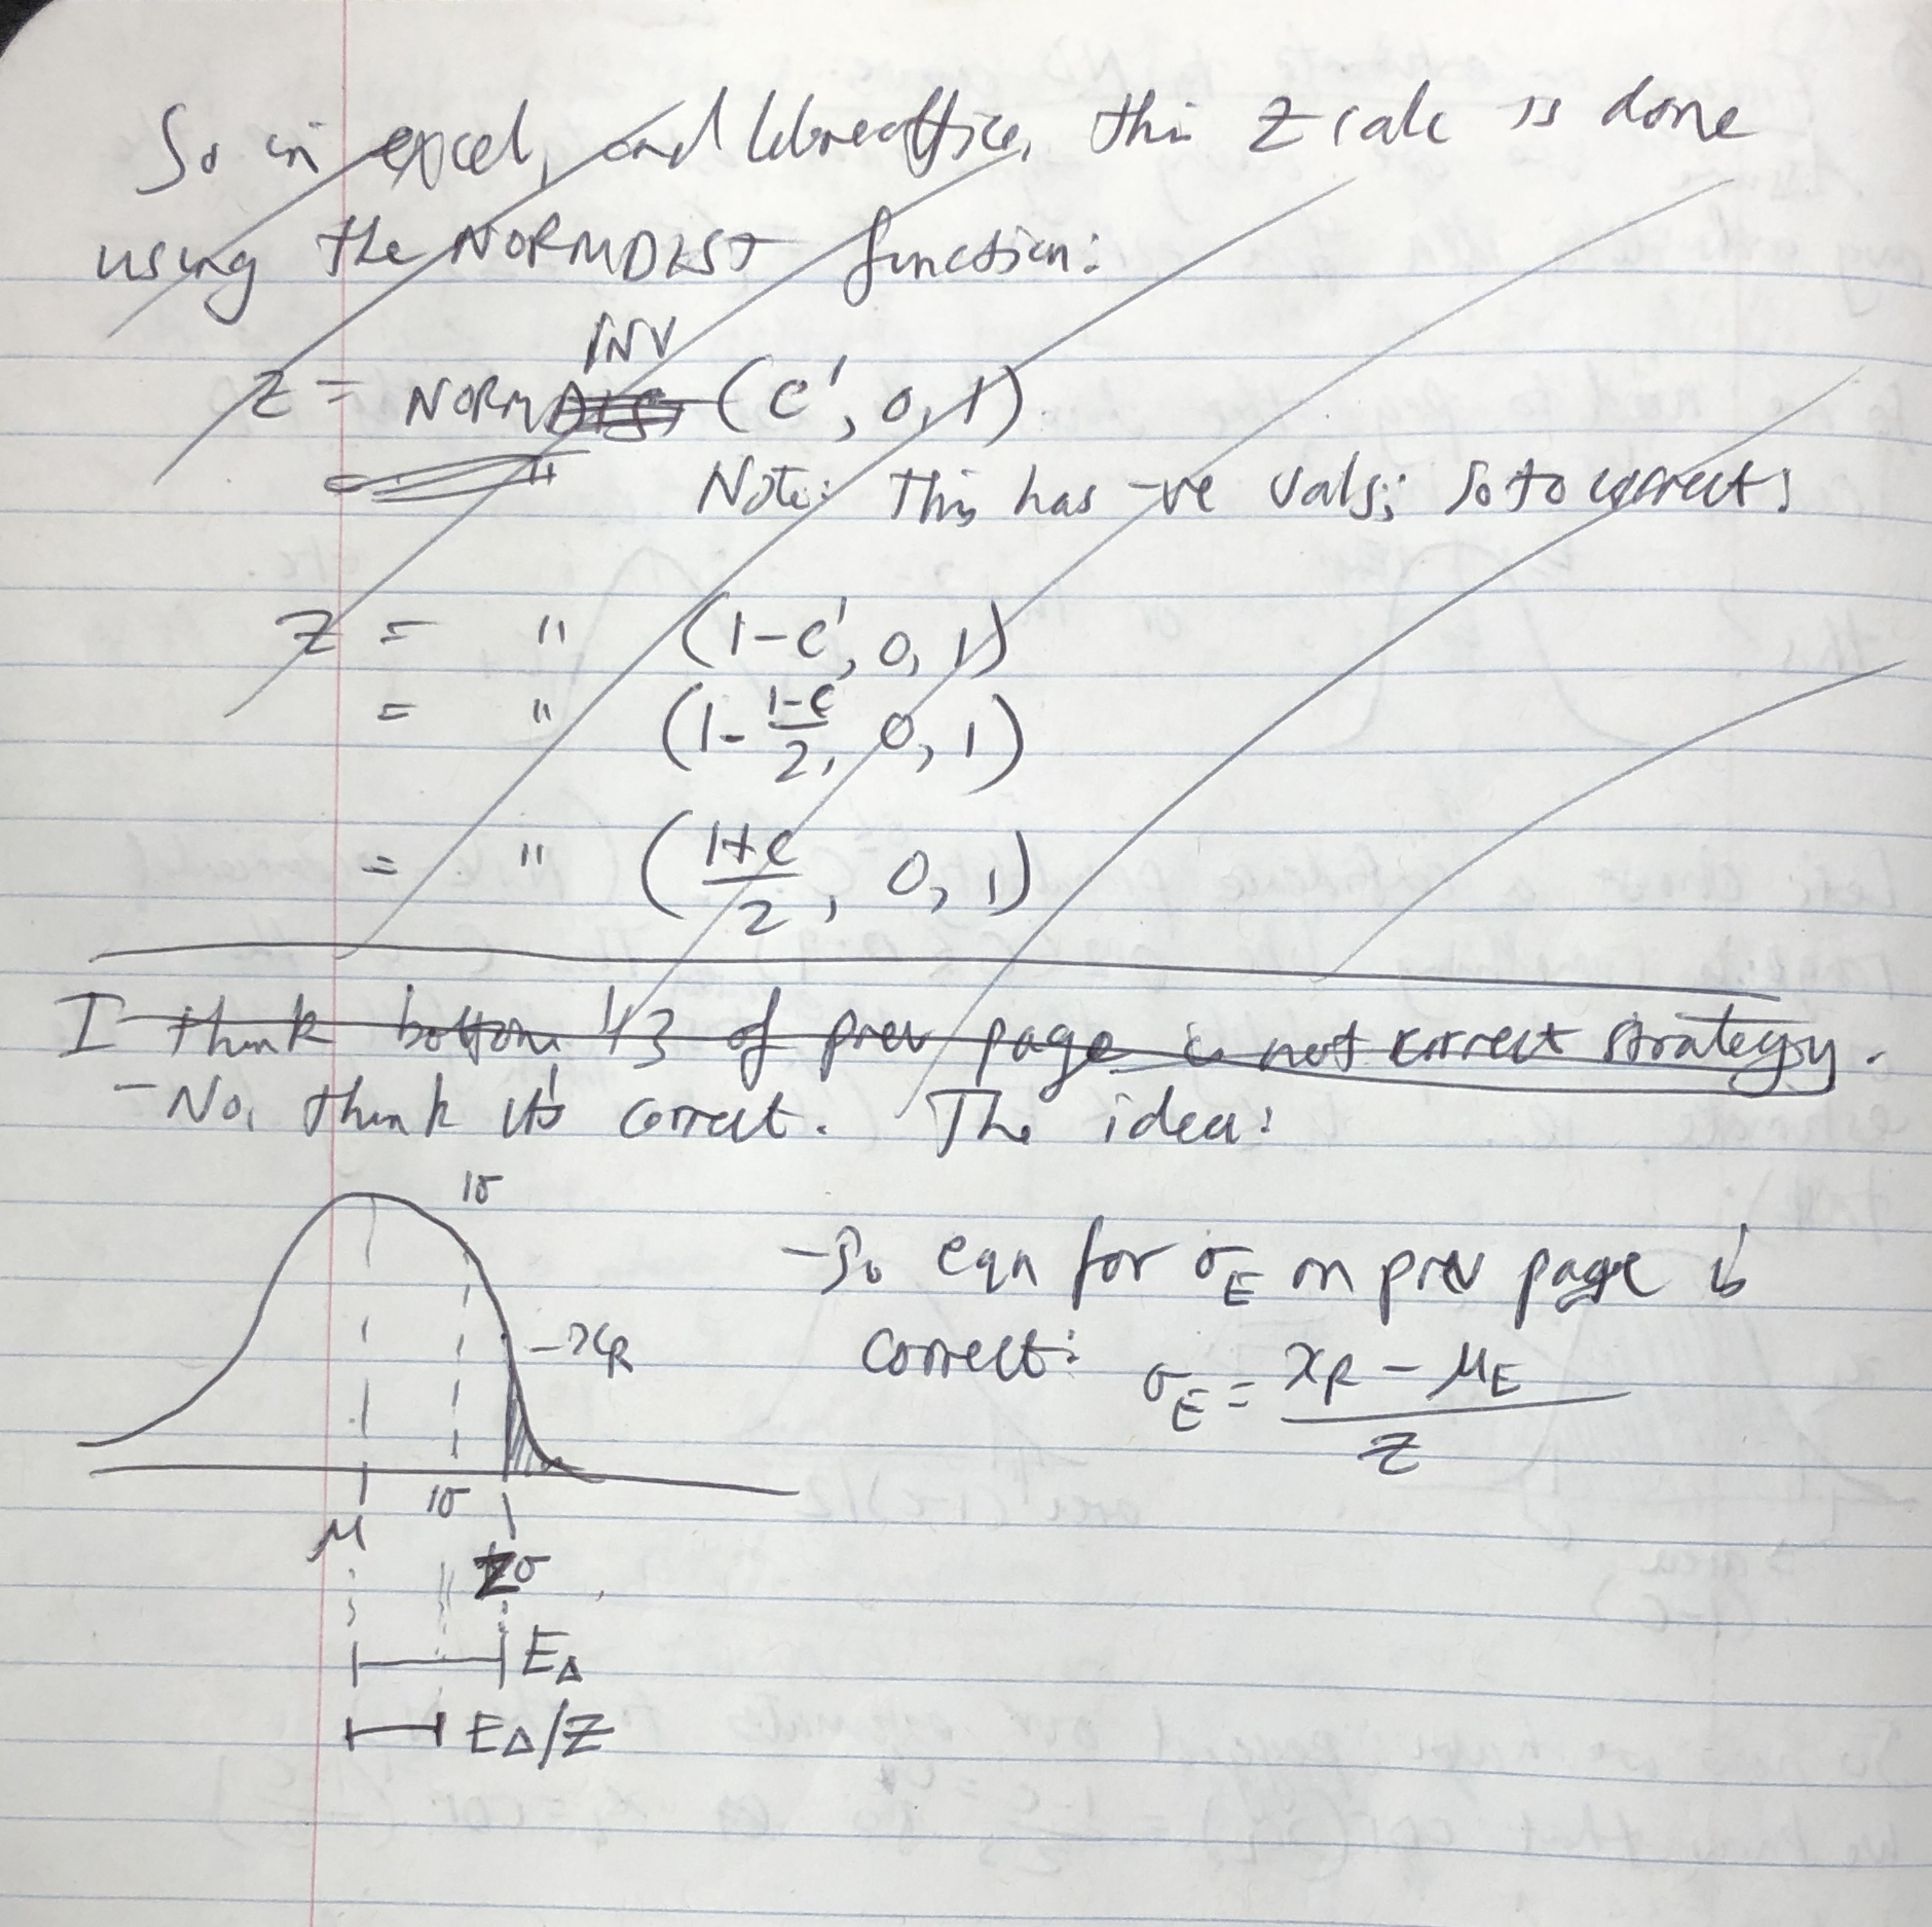 So in excel, and libreoffice, this Z calc is done
using the NORMDIST function:
INV
Z = NORMDIST (C', 0, 1)
= " Note: This has -ve vals; so to correct:
Z = " (1-C', 0, 1)
= " (1- \frac{1-C}{2}, 0, 1)
= " (\frac{1+C}{2}, 0, 1)
I think bottom 1/3 of prev page is not correct strategy.
- No, think it's correct. The idea:
1σ
- So eqn for σ_E on prev page is
- x_R
correct: σ_E = \frac{x_R - μ_E}{Z}
1σ
μ
Zσ
E_Δ
E_Δ/Z